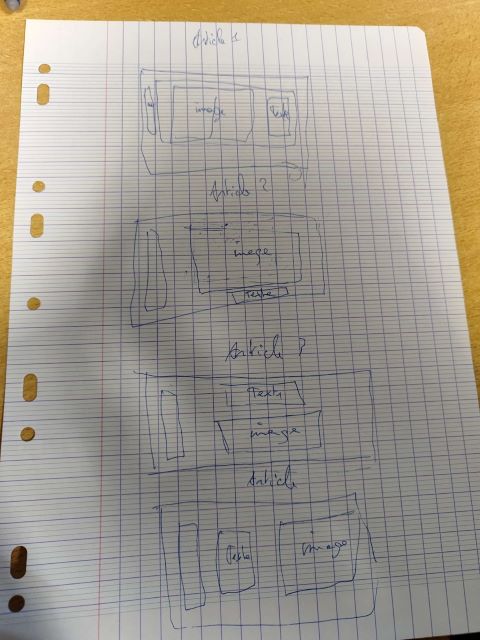 Article 1
image
Text
Article 2
image
Texte
Article 3
Texte
image
Article
Texte
image